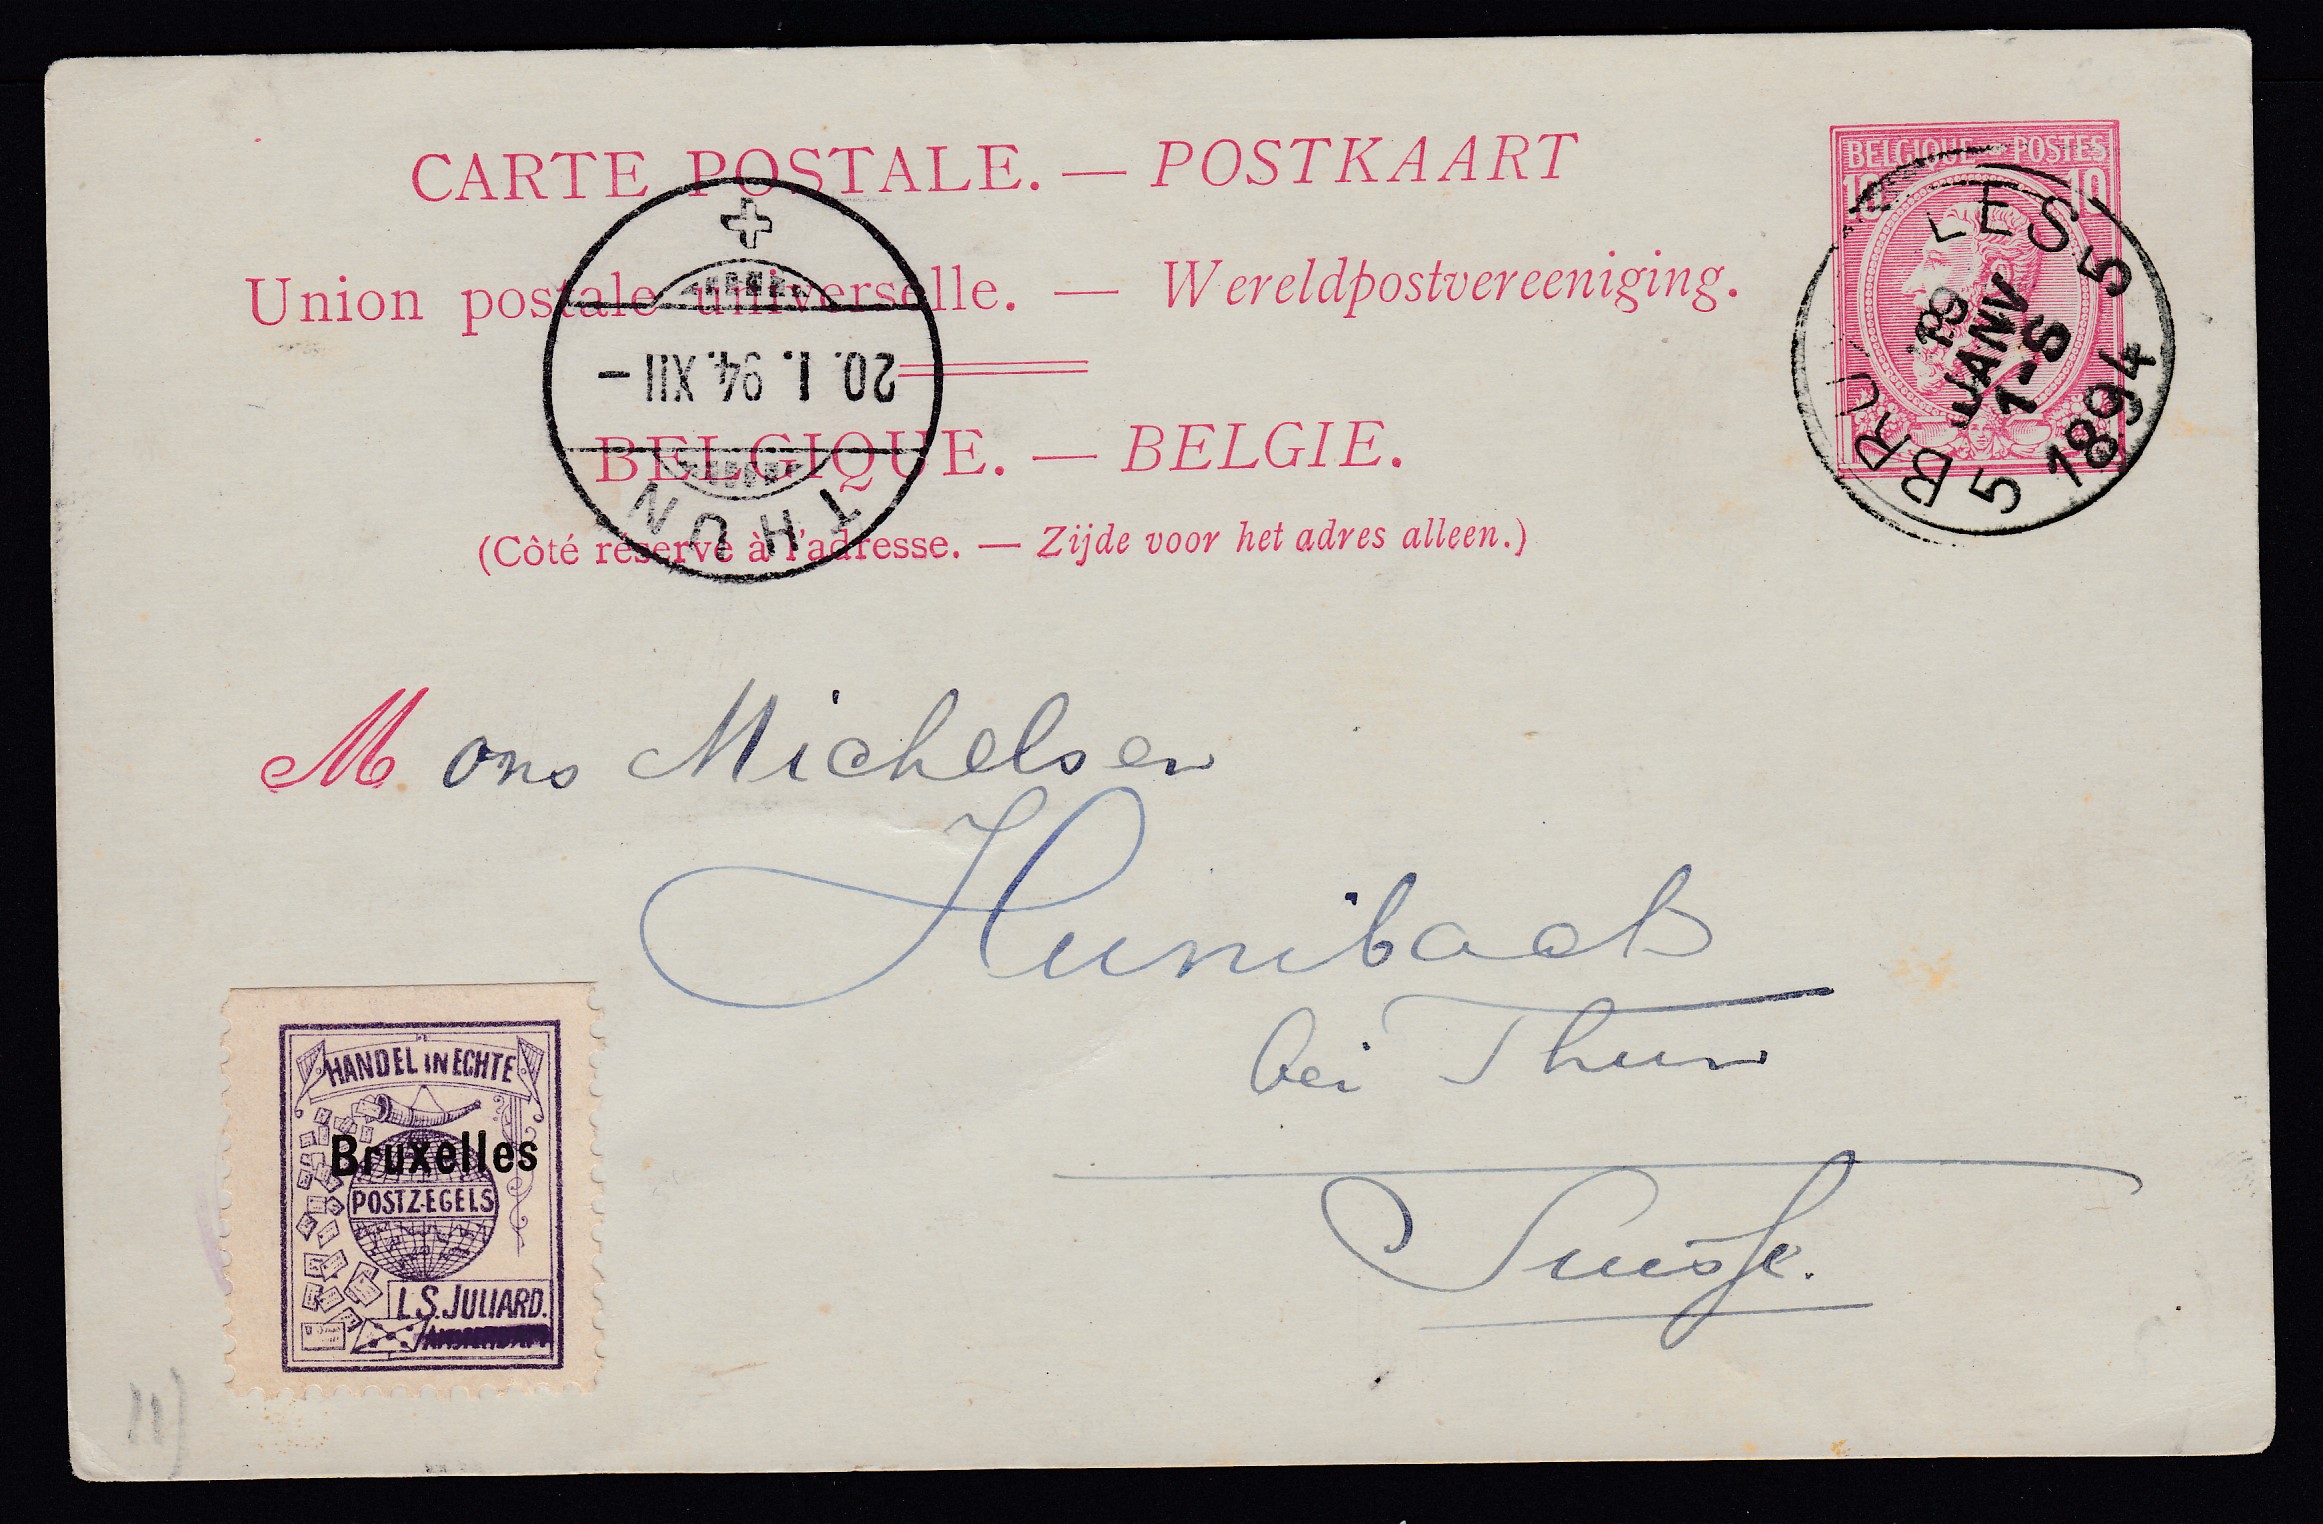 CARTE POSTALE. — POSTKAART
Union postale universelle. — Wereldpostvereeniging.
BELGIQUE. — BELGIE.
(Côté réservé à l'adresse. — Zijde voor het adres alleen.)
BELGIQUE - POSTES
10 10
BRUXELLES 5
19
JANV
1-S
5 1894
20. I. 94. XII -
THUN
Mons Michelsen
Hunibach
bei Thun
Suisse.
HANDEL IN ECHTE
Bruxelles
POSTZEGELS
L.S. JULIARD.
11)